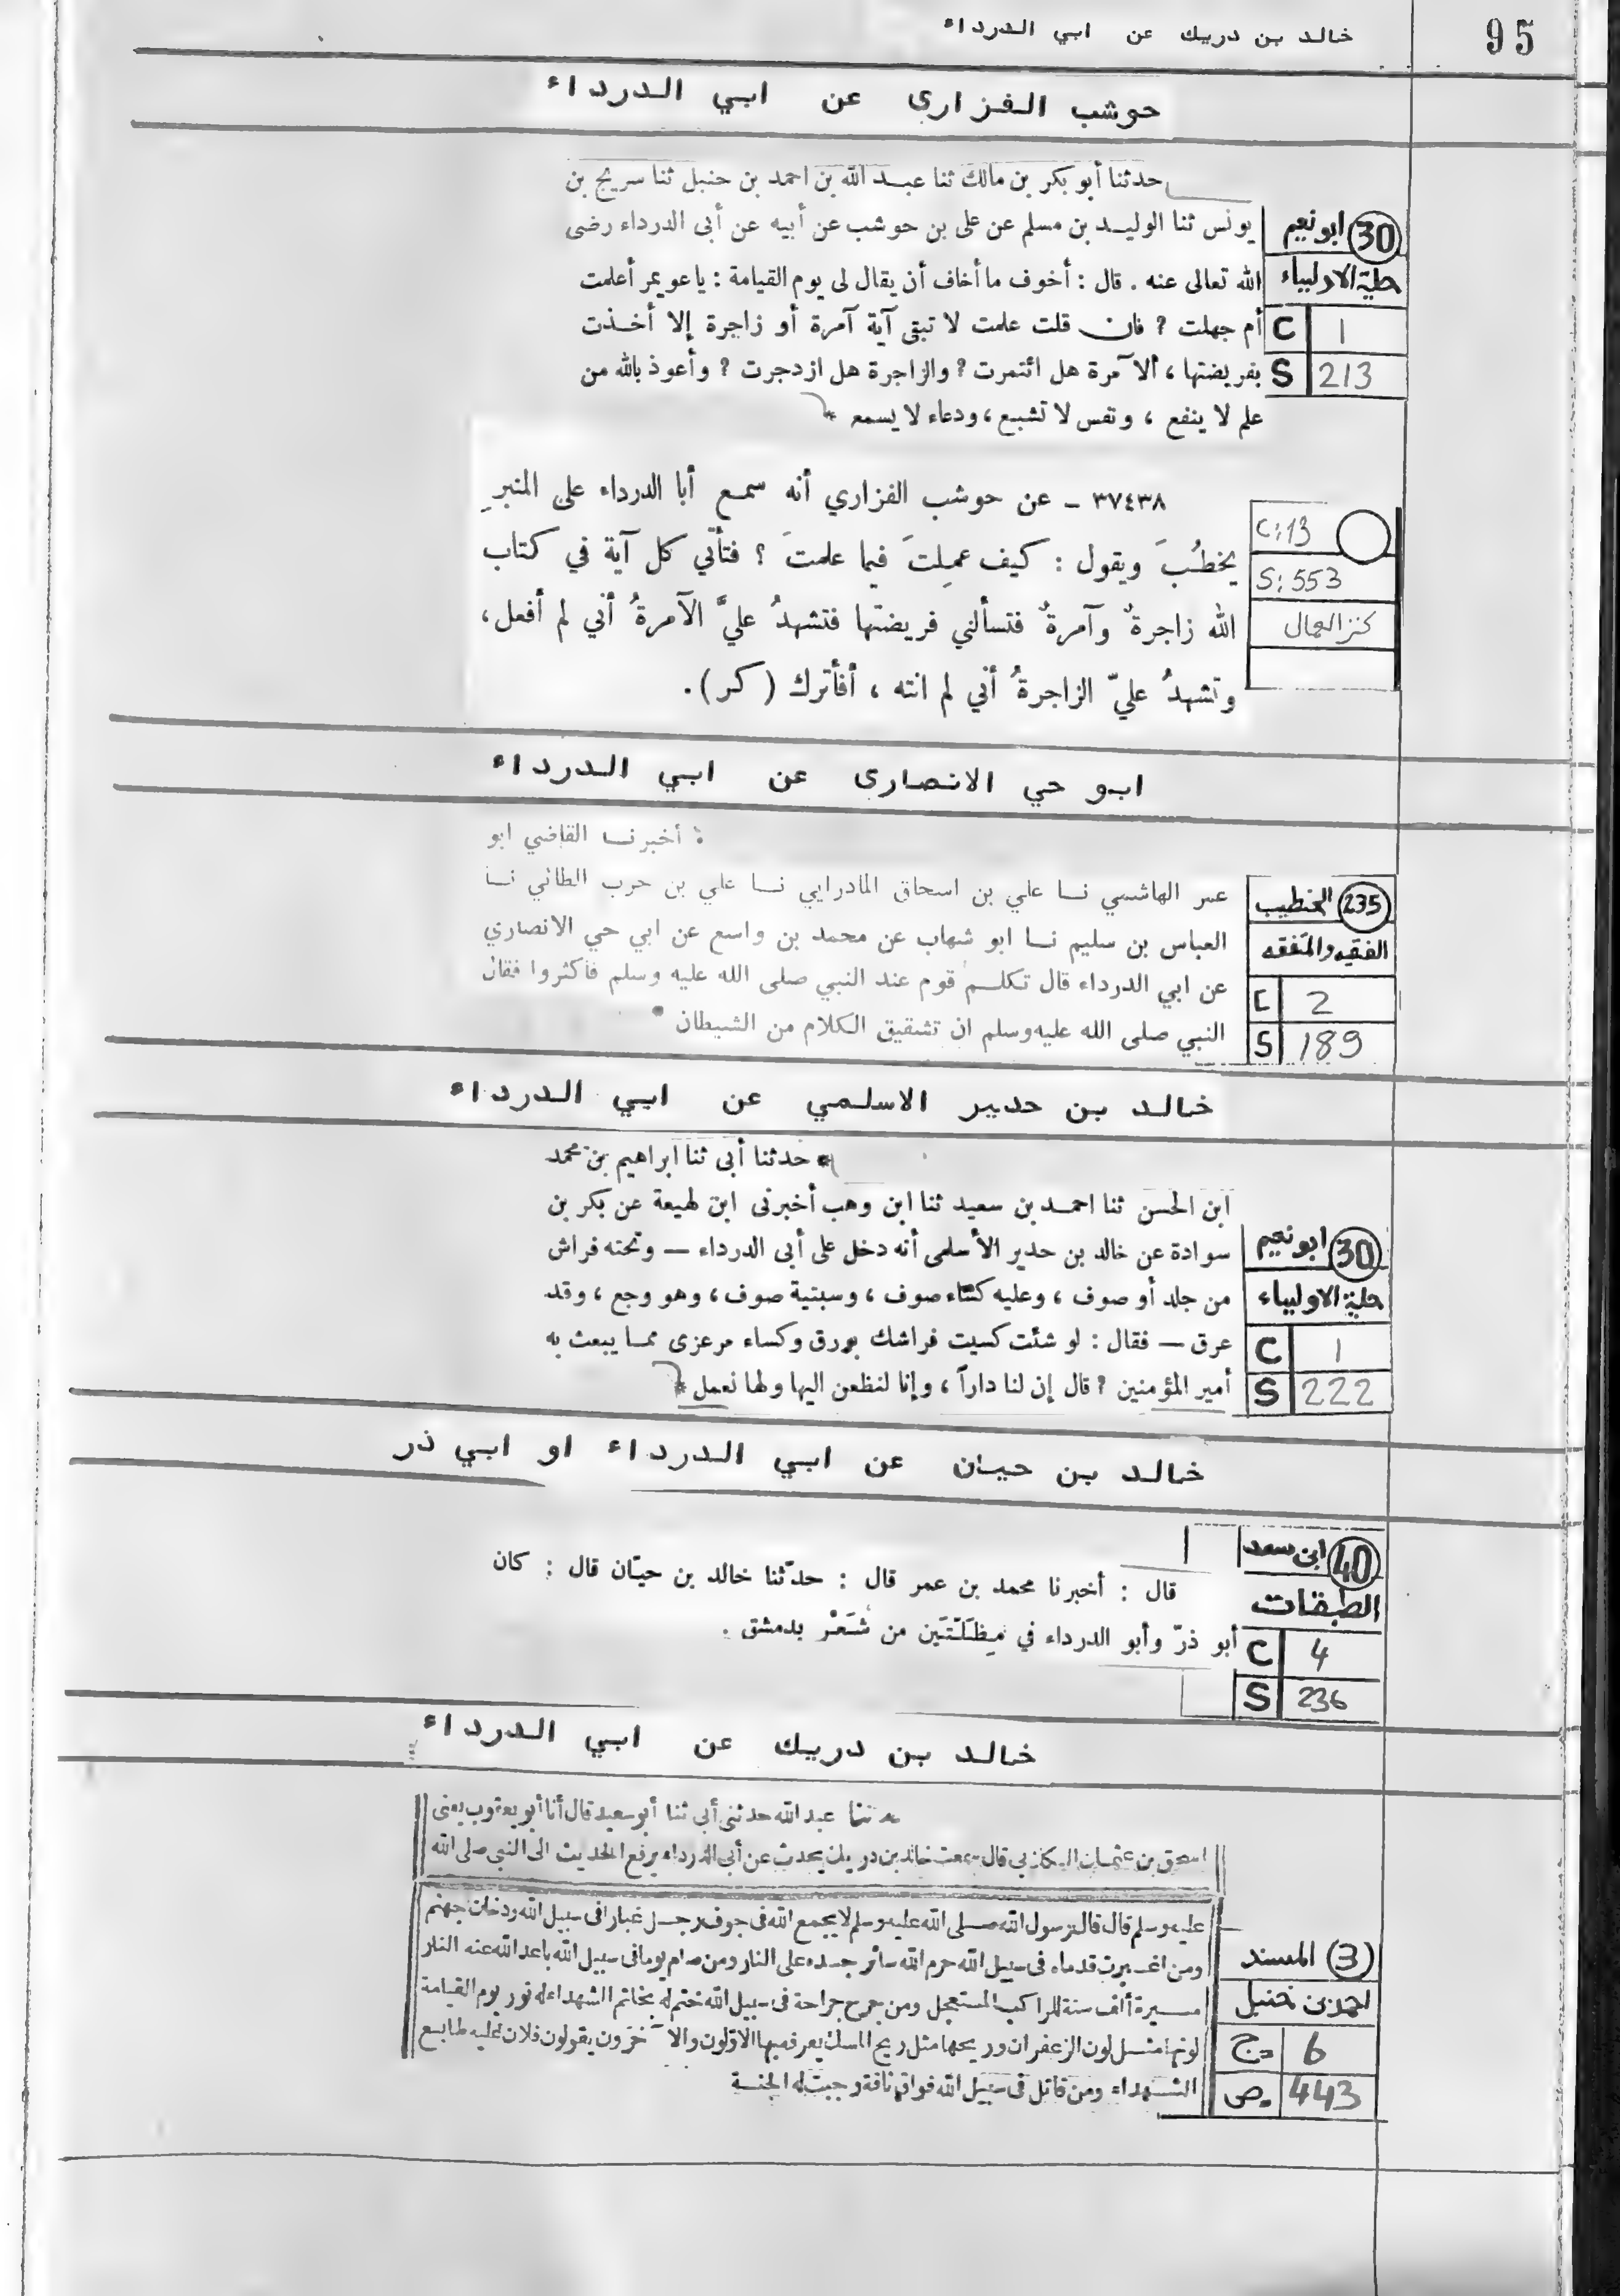 95
خالد بن دريك عن ابي الدرداء
حوشب الفزارى عن ابي الدرداء
حدثنا أبو بكر بن مالك ثنا عبد الله بن احمد بن حنبل ثنا سريج بن
يونس ثنا الوليد بن مسلم عن على بن حوشب عن أبيه عن أبى الدرداء رضى
الله تعالى عنه . قال : أخوف ما أخاف أن يقال لى يوم القيامة : يا عويمر أعلمت
أم جهلت ؟ فان قلت علمت لا تبقى آية آمرة أو زاجرة إلا أخذت
بفريضتها ، ألآمرة هل ائتمرت ؟ والزاجرة هل ازدجرت ؟ وأعوذ بالله من
علم لا ينفع ، ونفس لا تشبع ، ودعاء لا يسمع *
30 ابو نعيم
حلية الاولياء
C 1
S 213
٣٧٤٣٨ - عن حوشب الفزاري أنه سمع أبا الدرداء على المنبر
يخطُبَ ويقول : كيف عمِلتَ فيما علمتَ ؟ فتأتي كل آية في كتاب
الله زاجرةٌ وآمرةٌ فتسألني فريضتها فتشهدُ عليَّ الآمرةُ أني لم أفعل ،
وتشهدُ عليّ الزاجرةُ أني لم انته ، أفأترك ( كر ) .
C:13
S:553
كنز العمال
ابو حي الانصارى عن ابي الدرداء
: أخبرنا القاضي ابو
عمر الهاشمي نا علي بن اسحاق المادرايي نا علي بن حرب الطائي نا
العباس بن سليم نا ابو شهاب عن محمد بن واسع عن ابي حي الانصاري
عن ابي الدرداء قال تكلم قوم عند النبي صلى الله عليه وسلم فأكثروا فقال
النبي صلى الله عليه وسلم ان تشقيق الكلام من الشيطان *
235 الخطيب
الفقيه والمتفقه
C 2
S 189
خالد بن حدير الاسلمي عن ابي الدرداء
* حدثنا أبى ثنا ابراهيم بن محمد
ابن الحسن ثنا احمد بن سعيد ثنا ابن وهب أخبرنى ابن لهيعة عن بكر بن
سوادة عن خالد بن حدير الأسلمى أنه دخل على أبى الدرداء — وتحته فراش
من جلد أو صوف ، وعليه كساء صوف ، وسبتية صوف ، وهو وجع ، وقد
عرق — فقال : لو شئت كسيت فراشك بورق وكساء مرعزى مما يبعث به
أمير المؤمنين ؟ قال إن لنا داراً ، وإنا لنظعن اليها ولها نعمل *
30 ابو نعيم
حلية الاولياء
C 1
S 222
خالد بن حيان عن ابي الدرداء او ابي ذر
قال : أخبرنا محمد بن عمر قال : حدّثنا خالد بن حيّان قال : كان
أبو ذرّ وأبو الدرداء في مِظَلّتَين من شَعْر بدمشق .
40 ابن سعد
الطبقات
C 4
S 236
خالد بن دريك عن ابي الدرداء
حدثنا عبد الله حدثنى أبى ثنا أبو سعيد قال أنا أبو يعقوب يعنى
اسحق بن عثمان الكلابى قال سمعت خالد بن دريك يحدث عن أبى الدرداء يرفع الحديث الى النبى صلى الله
عليه وسلم قال قال رسول الله صلى الله عليه وسلم لا يجمع الله فى جوف رجل غبارا فى سبيل الله ودخان جهنم
ومن اغبرت قدماه فى سبيل الله حرم الله سائر جسده على النار ومن صام يوما فى سبيل الله باعد الله عنه النار
مسيرة ألف سنة للراكب المستعجل ومن جرح جراحة فى سبيل الله ختم له بخاتم الشهداء له نور يوم القيامة
لونها مثل لون الزعفران وريحها مثل ريح المسك يعرفه بها الاولون والآخرون يقولون فلان عليه طابع
الشهداء ومن قاتل فى سبيل الله فواق ناقة وجبت له الجنة
(3) المسند
احمد بن حنبل
ج 6
ص 443